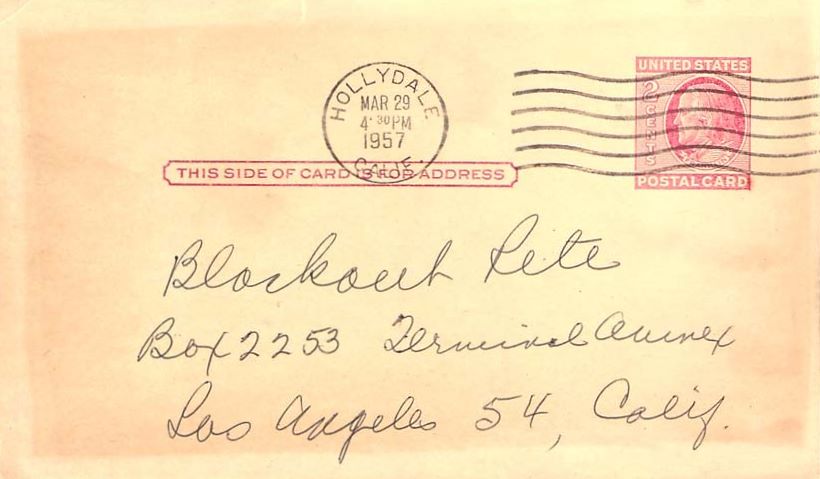 HOLLYDALE
MAR 29
4 30 PM
1957
CALIF.
UNITED STATES
2 CENTS
POSTAL CARD
THIS SIDE OF CARD IS FOR ADDRESS
Blackout Pete
Box 2253 Terminal Annex
Los Angeles 54, Calif.